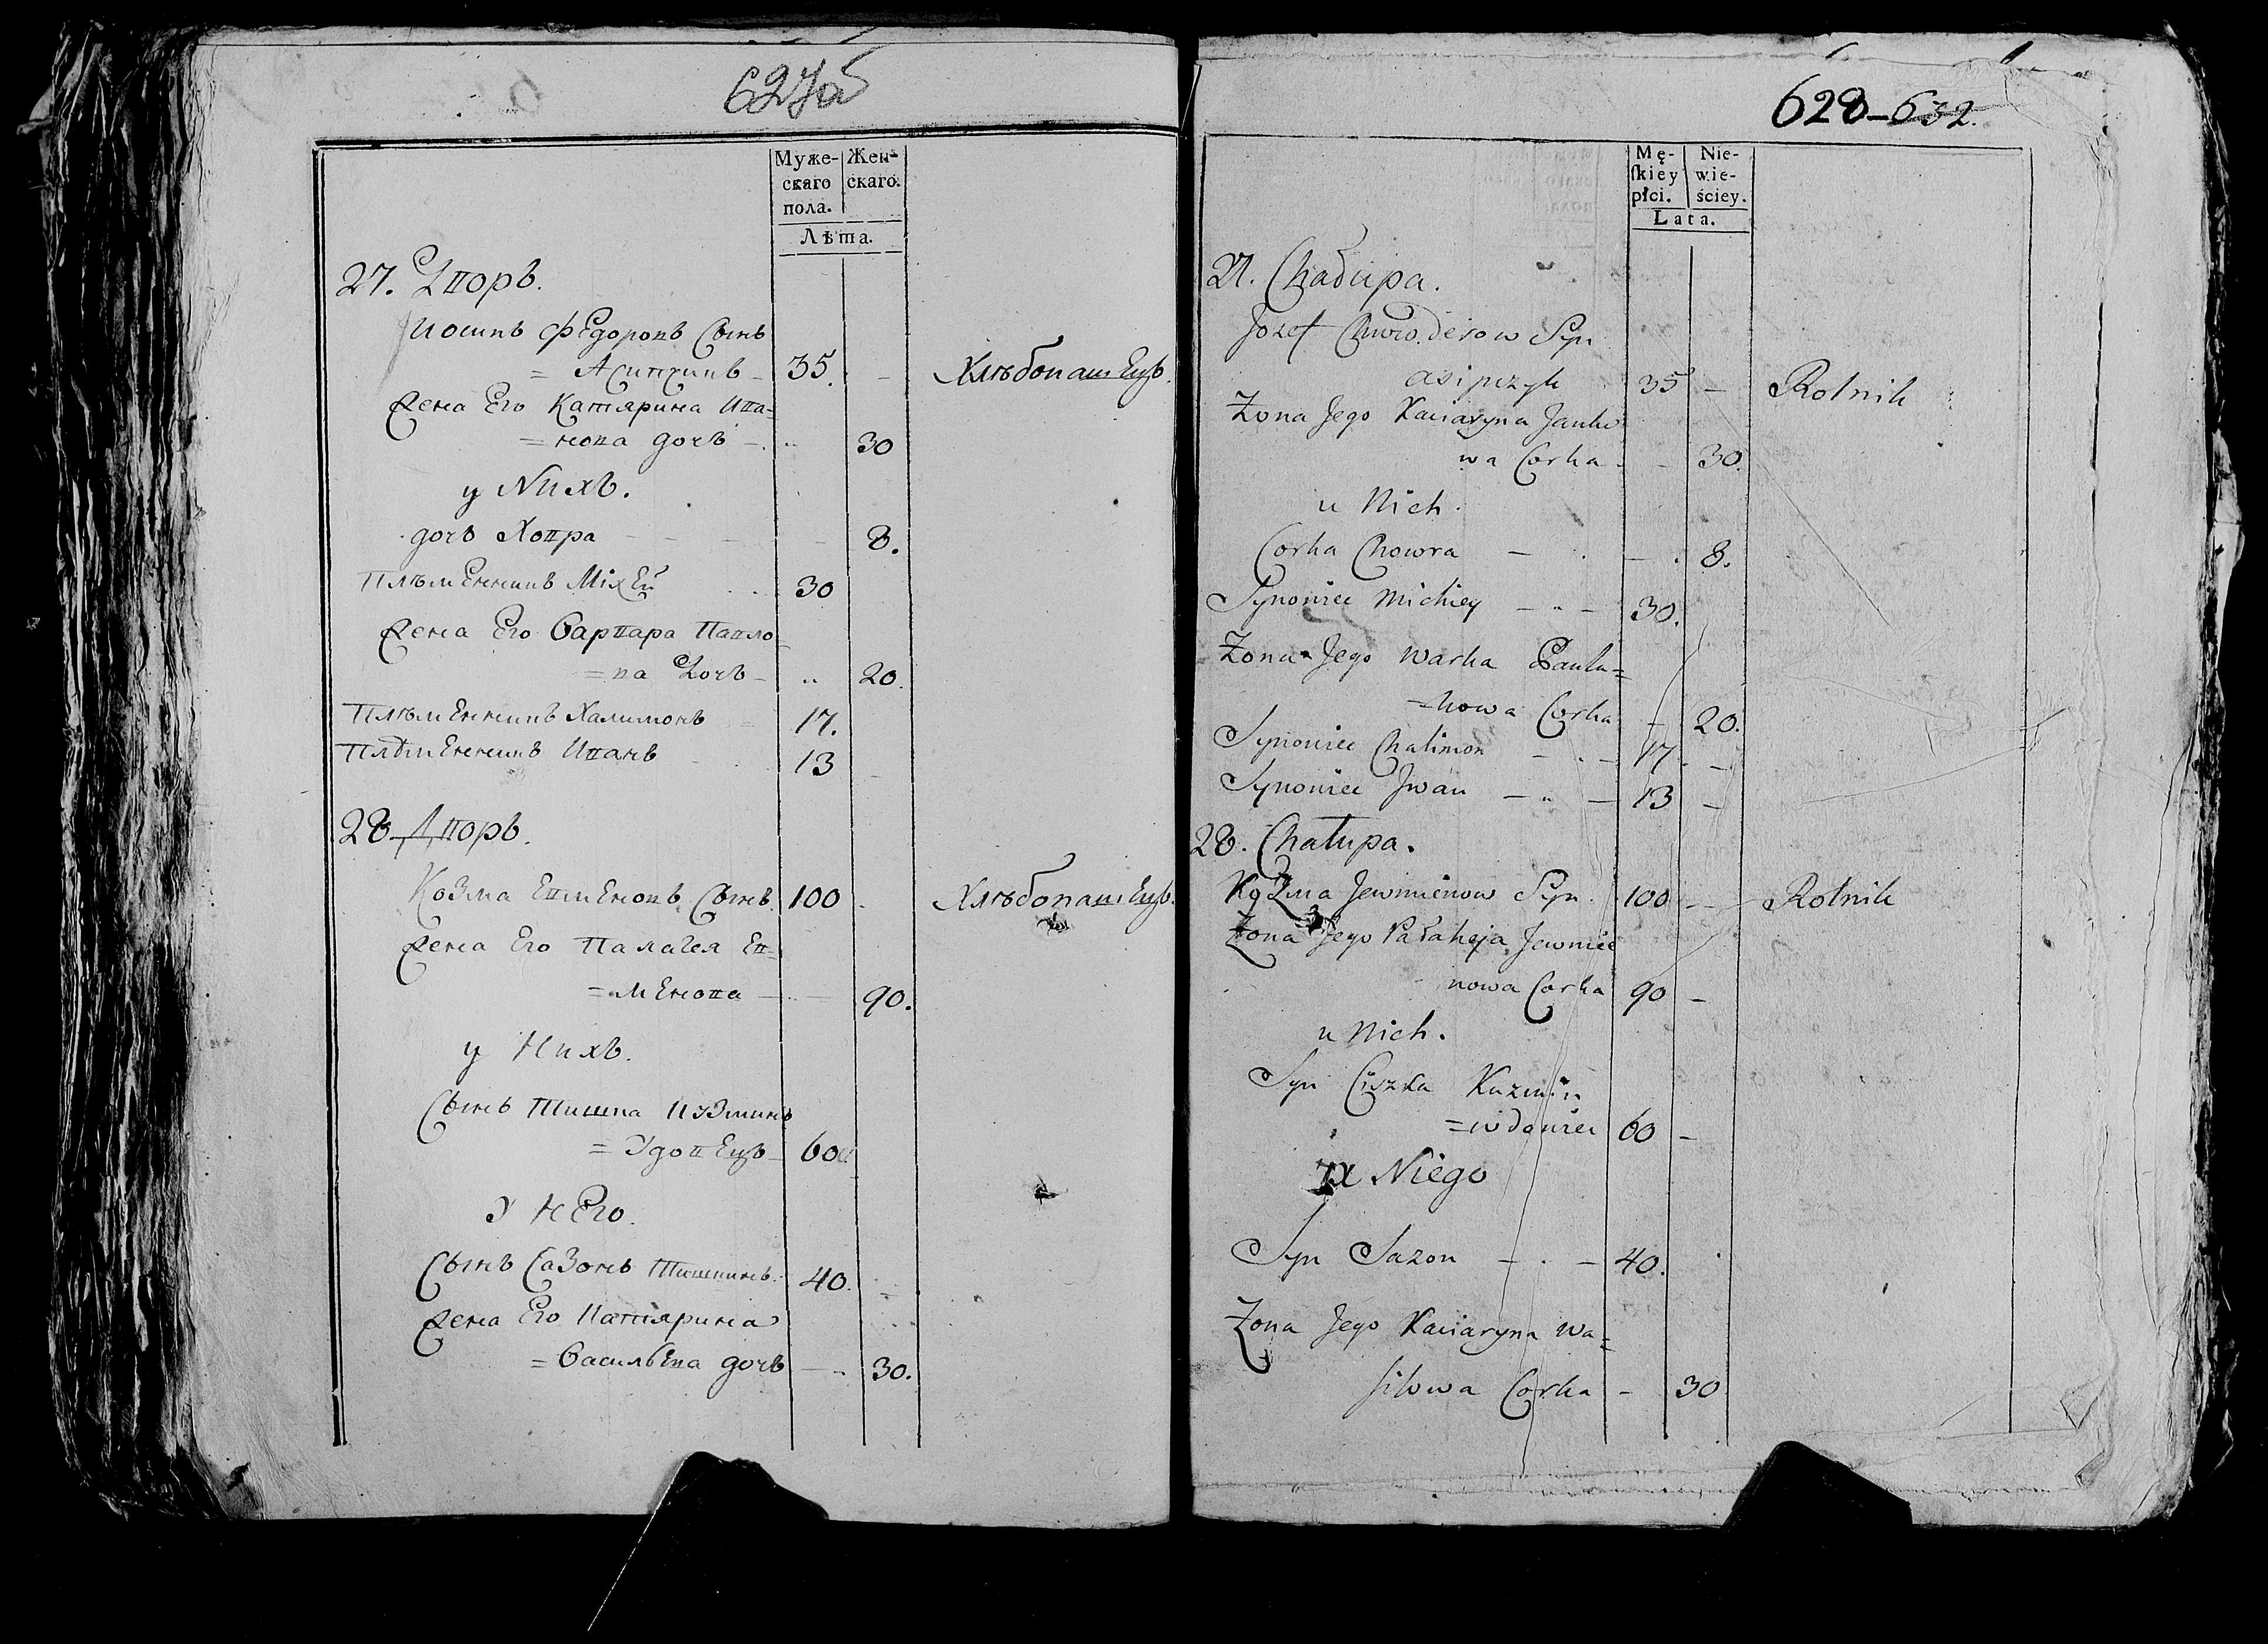 627об
Муже- Жен-
скаго скаго.
пола.
Лѣта.
27. Дворъ.
Иосипъ Федоровъ Сынъ
= Асипчикъ - 35. -
Хлѣбопашецъ.
Жена Его Катярина Ива-
= нова дочъ - .. 30
у Нихъ.
дочъ Ховра - - - 8.
Плѣменникъ Міхей 30
Жена Его Варвара Павло
= ва Дочъ - .. 20.
Плѣменникъ Халимонъ 17.
Плѣменникъ Иванъ 13
28. Дворъ.
Козма Евменовъ Сынъ. 100
Хлѣбопашецъ.
Жена Его Палагея Ев-
= менова - - 90.
у Нихъ.
Сынъ Тишка Кузминъ
= Удовецъ - 60
У Него.
Сынъ Сазонъ Тишкинъ. 40.
Жена Его Катярина
= Васильева дочъ - - 30.
628-632.
Mę- Nie-
ſkiey wie-
płci. ściey.
Lata.
27. Chałupa.
Jozef Syn
asipczyk 35 -
Rolnik
Żona Jego Kaciaryna Janko
wa Corka - - 30.
u Nich.
Corka Chowra - . - . 8.
Synowiec Michiey - .. - 30.
Żona Jego Warka Paulu=
= nowa Corka - 20.
Synowiec Chalimon - . - 17. -
Synowiec Jwan - .. - 13 -
28. Chałupa.
Kozma Jewmienow Syn. 100 -
Rolnik
Żona Jego Pałaheja Jewmie
nowa Corka 90 -
u Nich.
Syn Ciszka Kuzmin
= wdowiec 60 -
u Niego
Syn Sazon - . - 40.
Żona Jego Kaciaryna Wa=
silowa Corka - 30